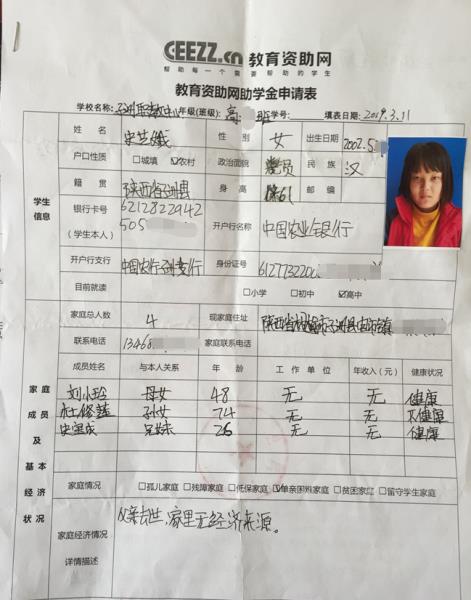 GEEZZ.cn 教育资助网
帮助每一个需要帮助的学生
教育资助网助学金申请表
学校名称: 年级(班级): 高 班 学号: 填表日期: 2019.3.11
姓名 史 性别 女 出生日期 2002.5
户口性质 □城镇 ☑农村 政治面貌 民族 汉
学生信息
籍贯 陕西省子洲县 身高 邮编
银行卡号 6212822942
(学生本人) 505 开户行名称 中国农业银行
开户行支行 中国农行子洲支行 身份证号
目前就读 □小学 □初中 ☑高中
家庭总人数 4 现家庭住址 陕西省榆林市子洲县 镇
联系电话 13468 家庭联系电话
成员姓名 与本人关系 年龄 工作单位 年收入(元) 健康状况
家庭成员及基本经济状况
刘小玲 母女 48 无 无 健康
杜修 孙女 74 无 无 不健康
史 兄妹 26 无 无 健康
家庭情况 □孤儿家庭 □残障家庭 □低保家庭 ☑单亲困难家庭 □贫困家庭 □留守学生家庭
家庭经济情况
详情描述
父亲去世,家里无经济来源。